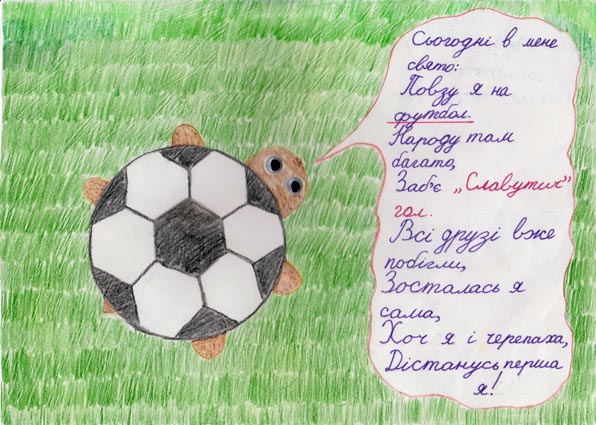 Сьогодні в мене
свято:
Повзу я на
футбол.
Народу там
багато,
Заб'є „Славутич"
гол.
Всі друзі вже
побігли,
Зосталась я
сама,
Хоч я і черепаха,
Дістанусь перша
я!